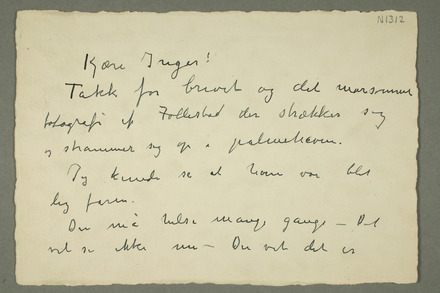 N1312
Kjære Inger!
Takk for brevet og det morsomme
fotografi af der strækker sig
og strammer sig op i palmehaven.
Jeg kunde se at han var blit
lig faren.
Du må hilse mange gange – Det
vil si ikke nu – Du vet det er